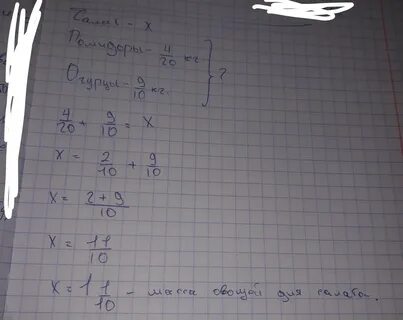 Салат - x
Помидоры - 4/20 кг
Огурцы - 9/10 кг. } ?
4/20 + 9/10 = x
x = 2/10 + 9/10
x = 2+9/10
x = 11/10
x = 1 1/10 - масса овощей для салата.